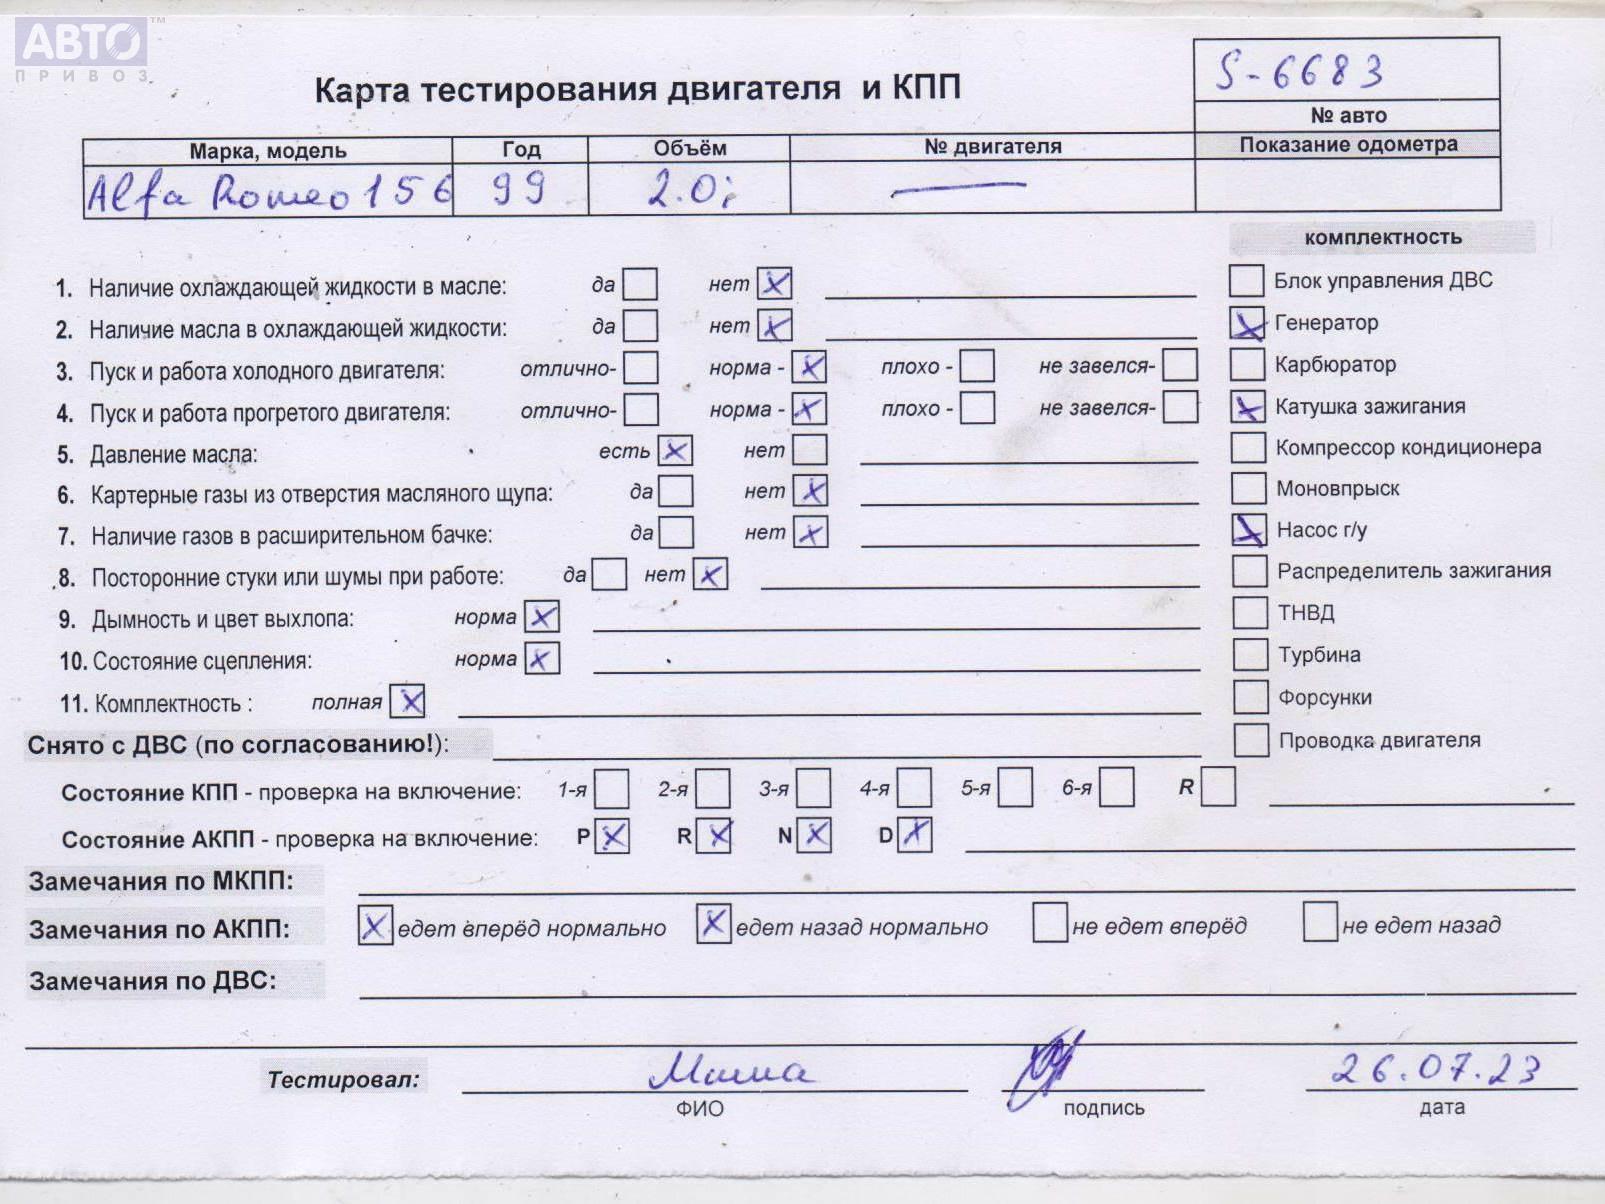 АВТО™
ПРИВОЗ
S-6683
Карта тестирования двигателя и КПП
№ авто
Марка, модель Год Объём № двигателя Показание одометра
Alfa Romeo 156 99 2.0i —
комплектность
1. Наличие охлаждающей жидкости в масле: да нет Блок управления ДВС
2. Наличие масла в охлаждающей жидкости: да нет Генератор
3. Пуск и работа холодного двигателя: отлично- норма - плохо - не завелся- Карбюратор
4. Пуск и работа прогретого двигателя: отлично- норма - плохо - не завелся- Катушка зажигания
5. Давление масла: есть нет Компрессор кондиционера
6. Картерные газы из отверстия масляного щупа: да нет Моновпрыск
7. Наличие газов в расширительном бачке: да нет Насос г/у
8. Посторонние стуки или шумы при работе: да нет Распределитель зажигания
9. Дымность и цвет выхлопа: норма ТНВД
10. Состояние сцепления: норма Турбина
11. Комплектность : полная Форсунки
Снято с ДВС (по согласованию!): Проводка двигателя
Состояние КПП - проверка на включение: 1-я 2-я 3-я 4-я 5-я 6-я R
Состояние АКПП - проверка на включение: P R N D
Замечания по МКПП:
Замечания по АКПП: едет вперёд нормально едет назад нормально не едет вперёд не едет назад
Замечания по ДВС:
Тестировал: 26.07.23
ФИО подпись дата